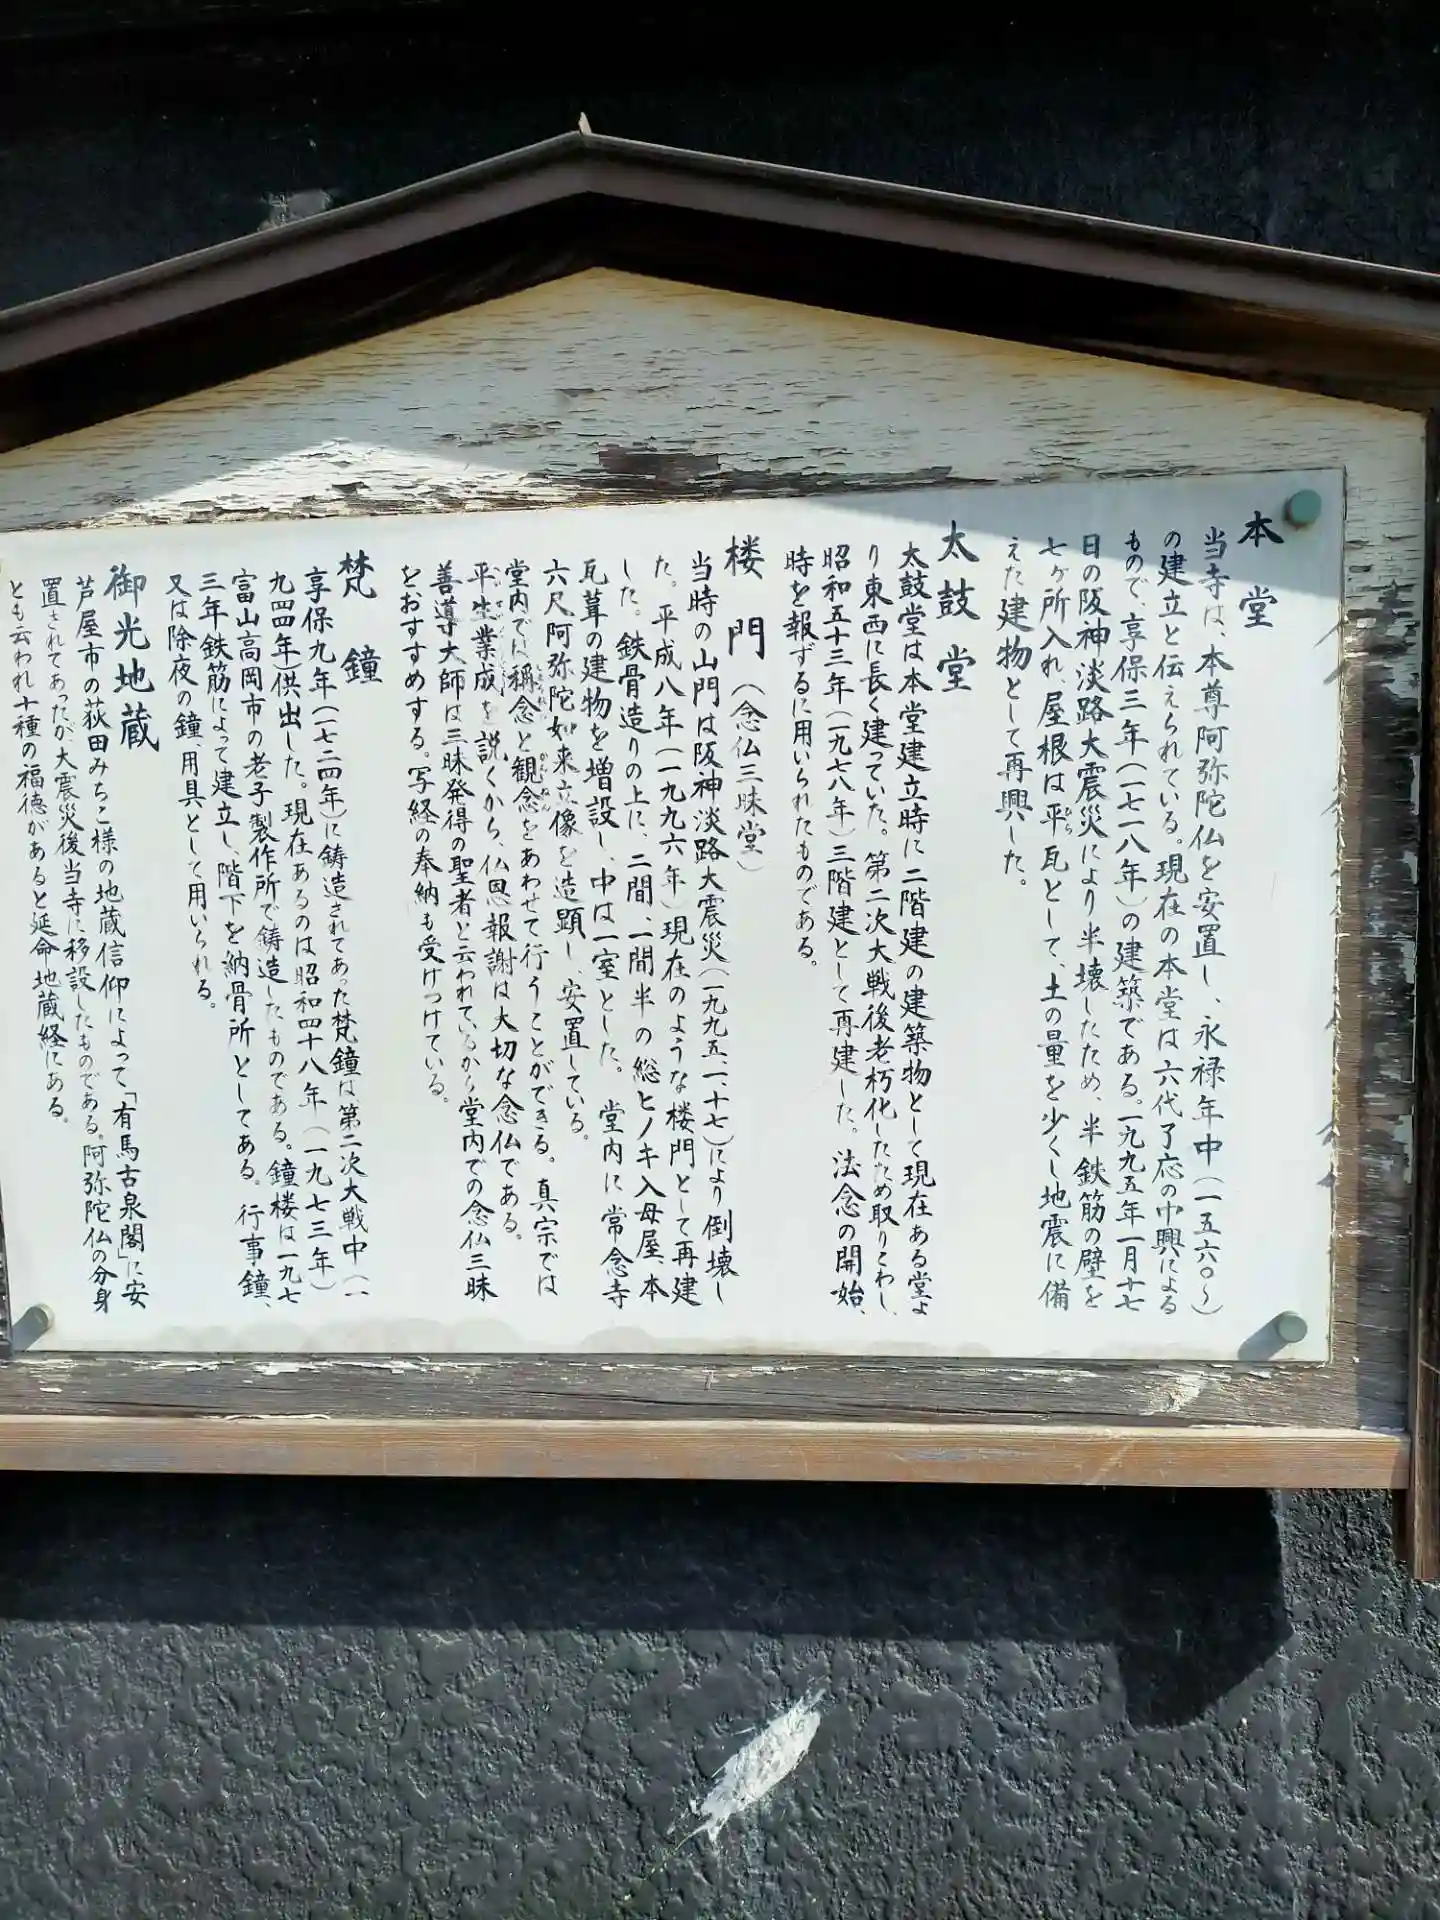 本堂
当寺は、本尊阿弥陀仏を安置し、永禄年中(一五六〇〜)
の建立と伝えられている。現在の本堂は六代了応の中興による
もので、享保三年(一七一八年)の建築である。一九九五年一月十七
日の阪神淡路大震災により半壊したため、半鉄筋の壁を
七ヶ所入れ、屋根は平瓦として、土の量を少くし地震に備
えた建物として再興した。
太鼓堂
太鼓堂は本堂建立時に二階建の建築物として現在ある堂よ
り東西に長く建っていた。第二次大戦後老朽化したため取りこわし、
昭和五十三年(一九七八年)三階建として再建した。法念の開始、
時を報ずるに用いられたものである。
楼門(念仏三昧堂)
当時の山門は阪神淡路大震災(一九九五、一、十七)により倒壊し
た。平成八年(一九九六年)現在のような楼門として再建
した。鉄骨造りの上に、二間、一間半の総ヒノキ入母屋、本
瓦葺の建物を増設し、中は一室とした。堂内に常念寺
六尺阿弥陀如来立像を造顕し、安置している。
堂内では称念と観念をあわせて行うことができる。真宗では
平生業成を説くから、仏恩報謝は大切な念仏である。
善導大師は三昧発得の聖者と云われているから堂内での念仏三昧
をおすすめする。写経の奉納も受けつけている。
梵鐘
享保九年(一七二四年)に鋳造されてあった梵鐘は第二次大戦中(一
九四四年)供出した。現在あるのは昭和四十八年(一九七三年)
富山高岡市の老子製作所で鋳造したものである。鐘楼は一九七
三年鉄筋によって建立し、階下を納骨所としてある。行事鐘、
又は除夜の鐘、用具として用いられる。
御光地蔵
芦屋市の荻田みちこ様の地蔵信仰によって「有馬古泉閣」に安
置されてあったが、大震災後当寺に移設したものである。阿弥陀仏の分身
とも云われ十種の福徳があると延命地蔵経にある。